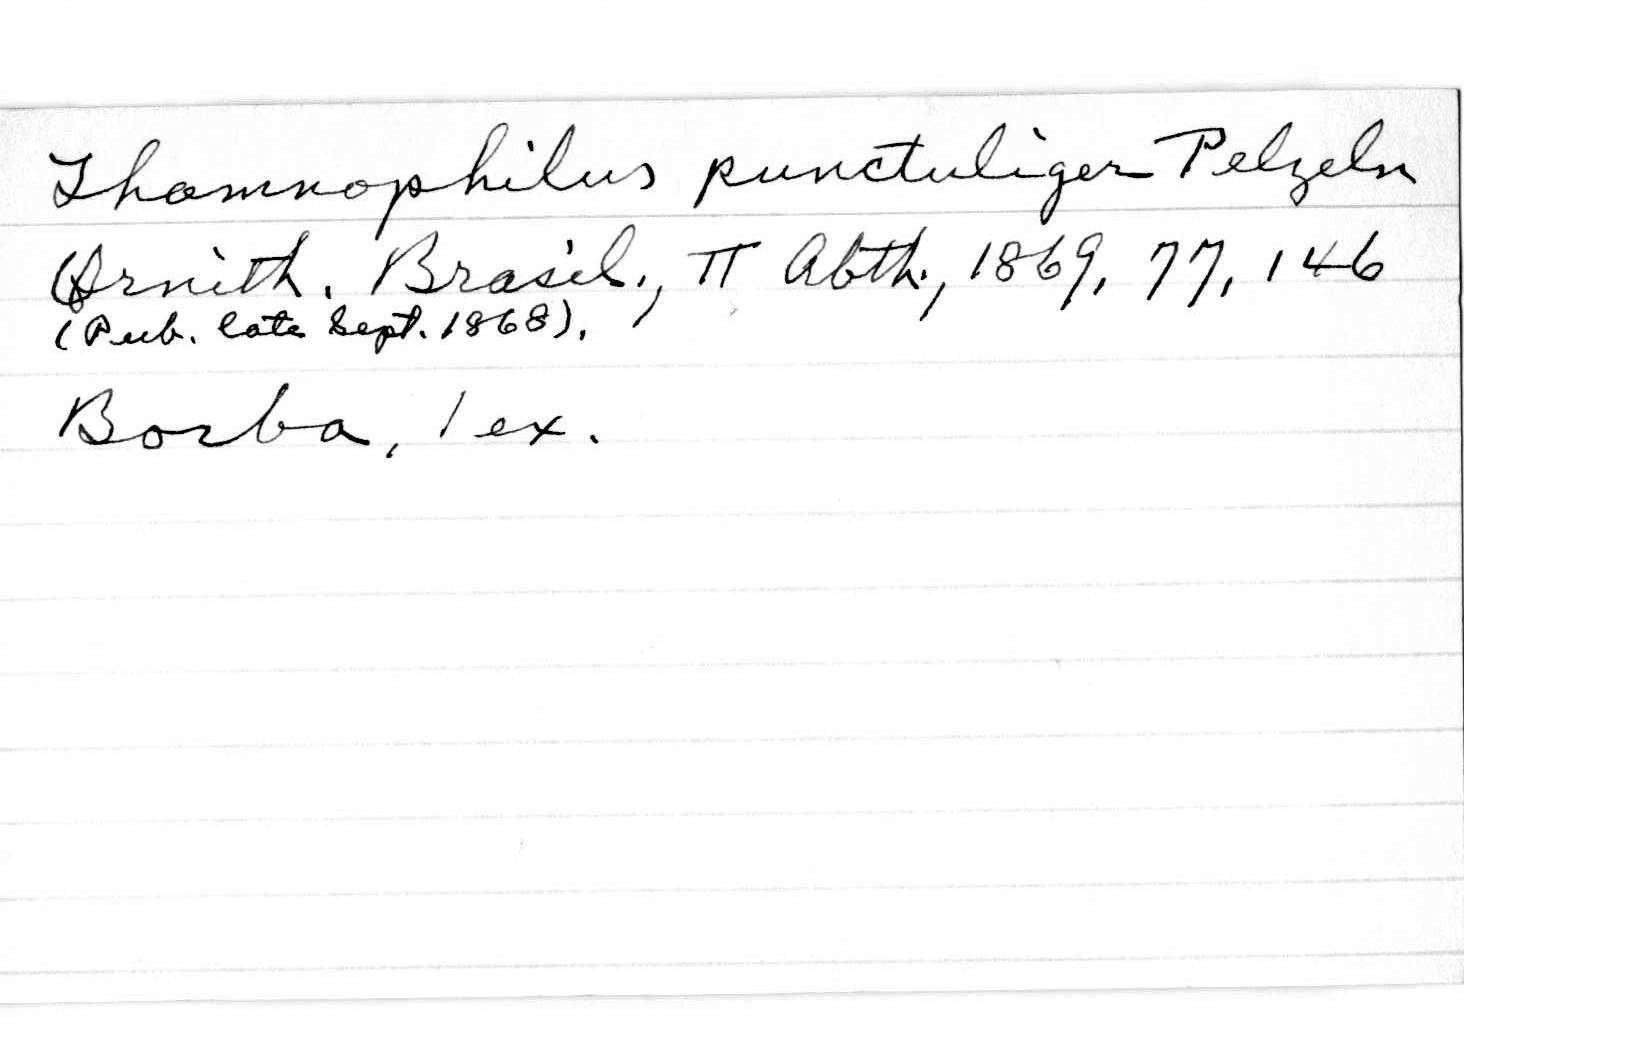 Thamnophilus punctuliger Pelzeln
Ornith. Brasil., II Abth., 1869, 77, 146
(Pub. late Sept. 1868).
Borba, 1 ex.